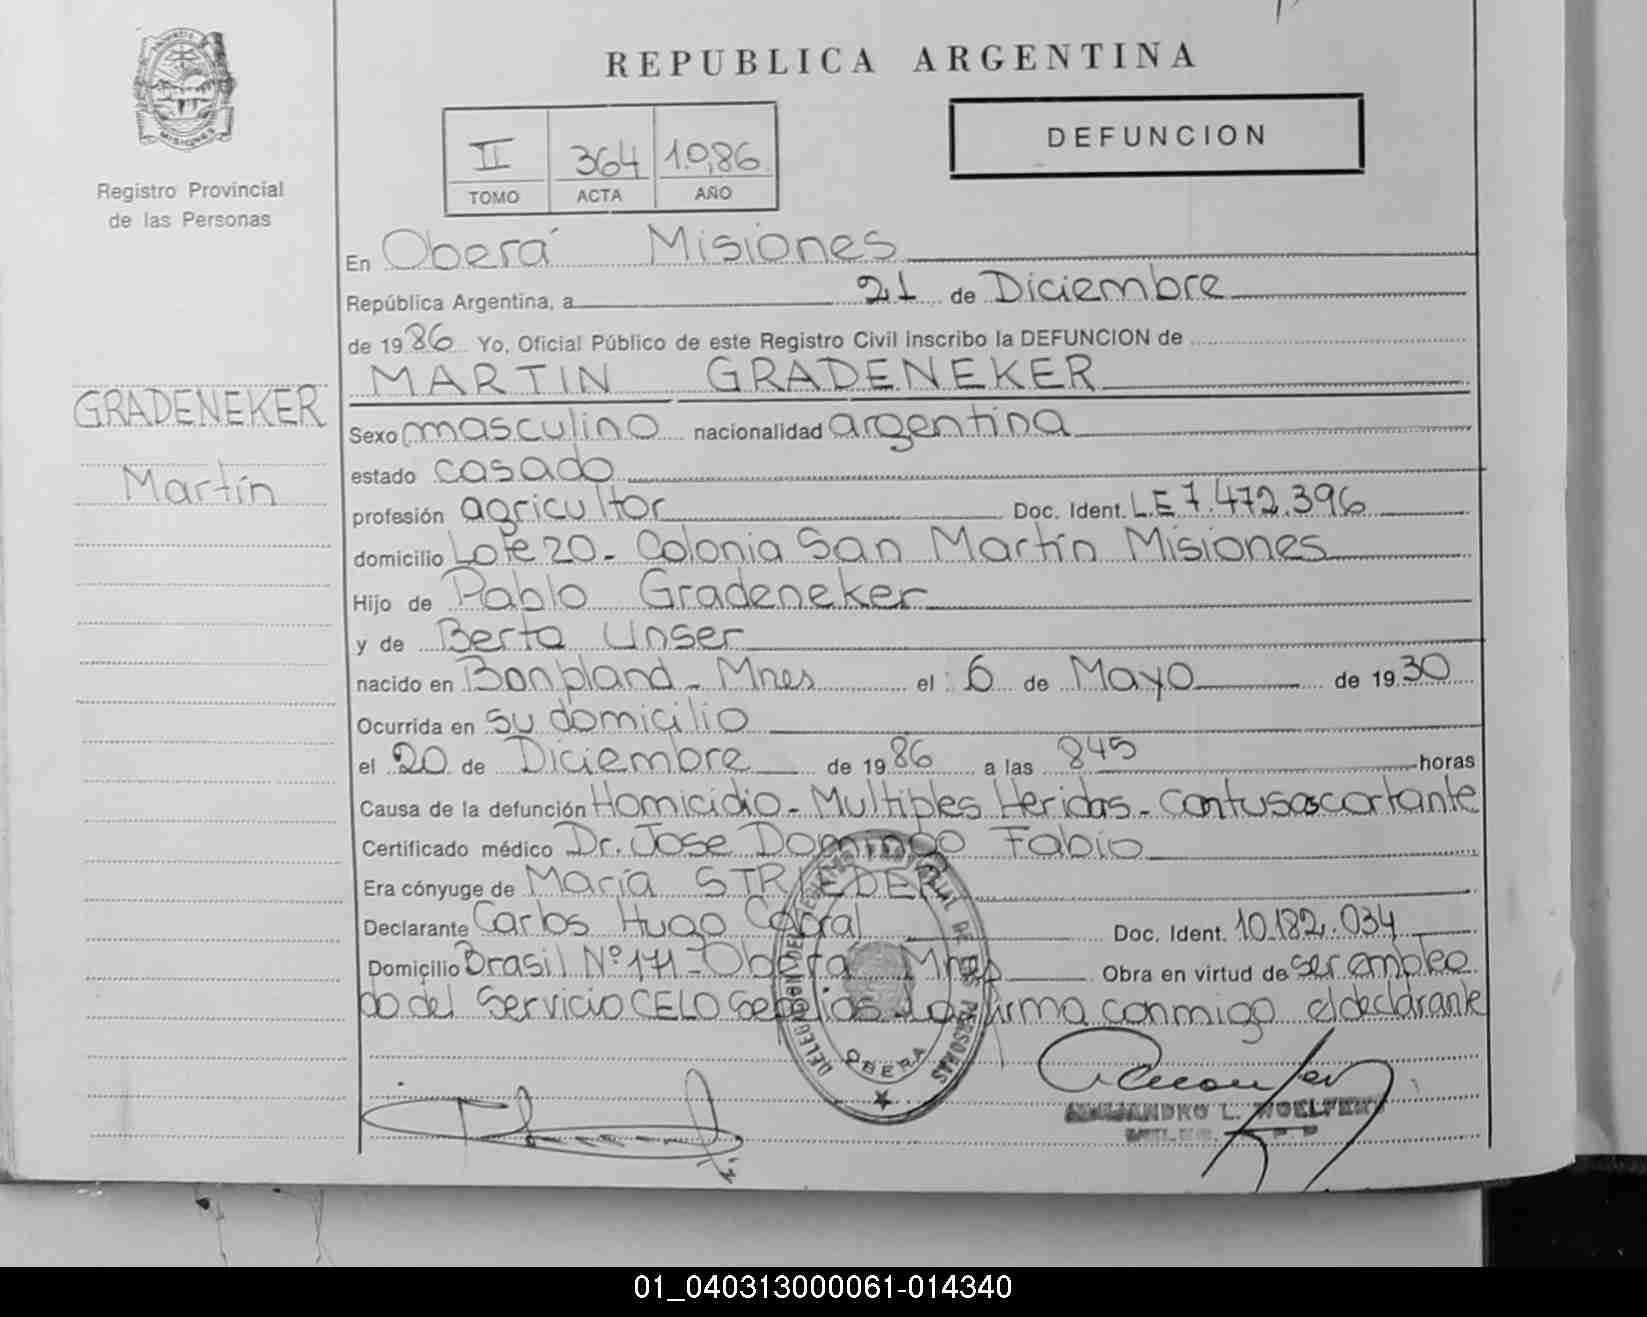 REPUBLICA ARGENTINA
MISIONES
Registro Provincial
de las Personas
II 364 1.986
TOMO ACTA AÑO
DEFUNCION
En Oberá Misiones
República Argentina, a 21 de Diciembre
de 1986 Yo, Oficial Público de este Registro Civil inscribo la DEFUNCION de
MARTIN GRADENEKER
GRADENEKER
Martín
Sexo masculino nacionalidad argentina
estado casado
profesión agricultor Doc. Ident. L.E 7.472.396
domicilio Lote 20 - Colonia San Martín Misiones
Hijo de Pablo Gradeneker
y de Berta Unser
nacido en Bonpland - Mnes el 6 de Mayo de 1930
Ocurrida en su domicilio
el 20 de Diciembre de 1986 a las 845 horas
Causa de la defunción Homicidio - Multiples Heridas - contusascortante
Certificado médico Dr. Jose Domingo Fabio
Era cónyuge de María STRIEDER
Declarante Carlos Hugo Cabral Doc. Ident. 10.182.034
Domicilio Brasil Nº 171 - Oberá Mnes Obra en virtud de ser emplea
do del Servicio CELO Sepelios - La firma conmigo el declarante
OBERA
ALEJANDRO L.
01_040313000061-014340